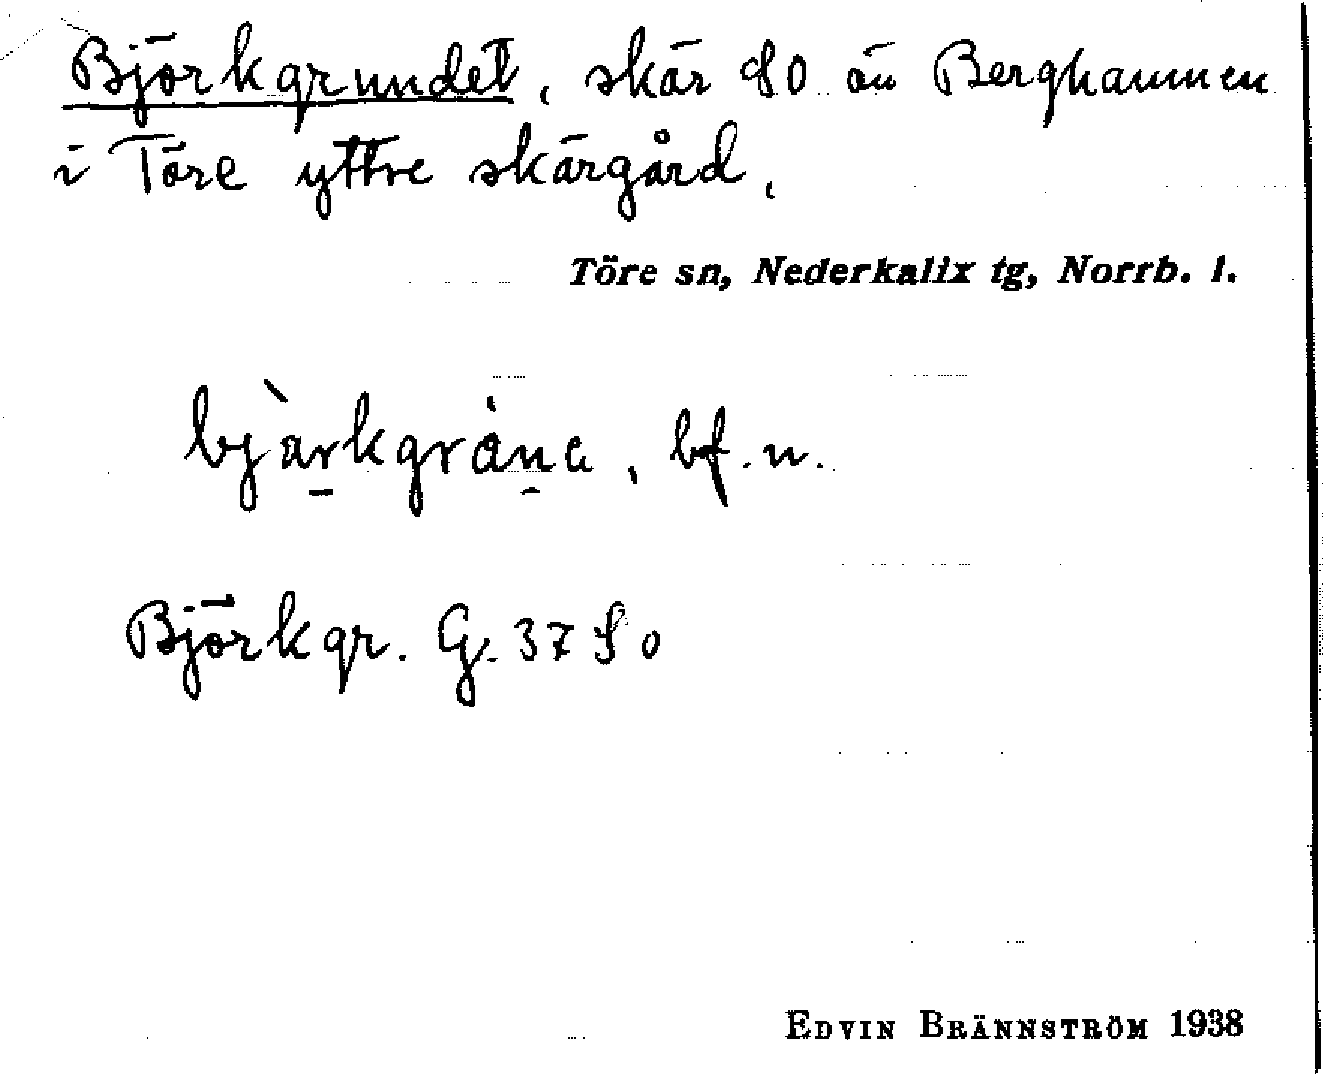 Björkgrundet, skär SO om Berghamnen
i Töre yttre skärgård.
Töre sn, Nederkalix tg, Norrb. l.
bjàrkgràna, bf. n.
Björkgr. G. 37 So
EDVIN BRÄNNSTRÖM 1938